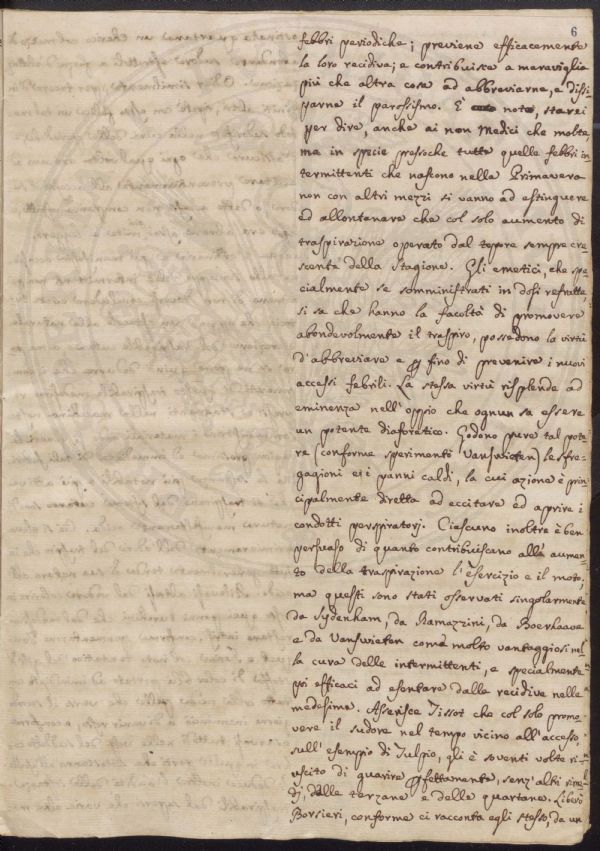 6
febbri periodiche; previene efficacemente
la loro recidiva; e contribuisce a maraviglia
più che altra cosa ad abbreviarne, e dissi-
parne il parossismo. È noto, starei
per dire, anche ai non Medici che molte,
ma in specie pressoche tutte quelle febbri in-
termittenti che nascono nella Primavera
non con altri mezzi si vanno ad estinguere
ed allontanare che col solo aumento di
traspirazione operato dal tepore sempre cre-
scente della Stagione. Gli emetici, che spe-
cialmente se somministrati in dosi refratte,
si sa che hanno la facoltà di promovere
abondevolmente il traspiro, possedono la virtù
d'abbreviare e fino di prevenire i nuovi
accessi febrili. La stessa virtù risplende ad
eminenza nell'oppio che ognun sa essere
un potente diaforetico. Godono pure tal pote-
re (conforme sperimentò Vanswieten) le sfre-
gagioni e i panni caldi, la cui azione è prin-
cipalmente diretta ad eccitare ed aprire i
condotti perspiratorj. Ciascuno inoltre è ben
persuaso di quanto contribuiscano all' aumen-
to della traspirazione l'esercizio e il moto,
ma questi sono stati osservati singolarmente
da Sydenham, da Ramazzini, da Boerhaave
e da Vanswieten come molto vantaggiosi nel-
la cura delle intermittenti, e specialmente
poi efficaci ad esentare dalle recidive nelle
medesime. Asserisce Tissot che col solo promo-
vere il sudore nel tempo vicino all'accesso,
sull'esempio di Tulpio, gli è soventi volte ri-
uscito di guarire pfettamente, senz'altri rime-
dj, delle terzane e delle quartane. Liberò
Borsieri, conforme ci racconta egli stesso, da un